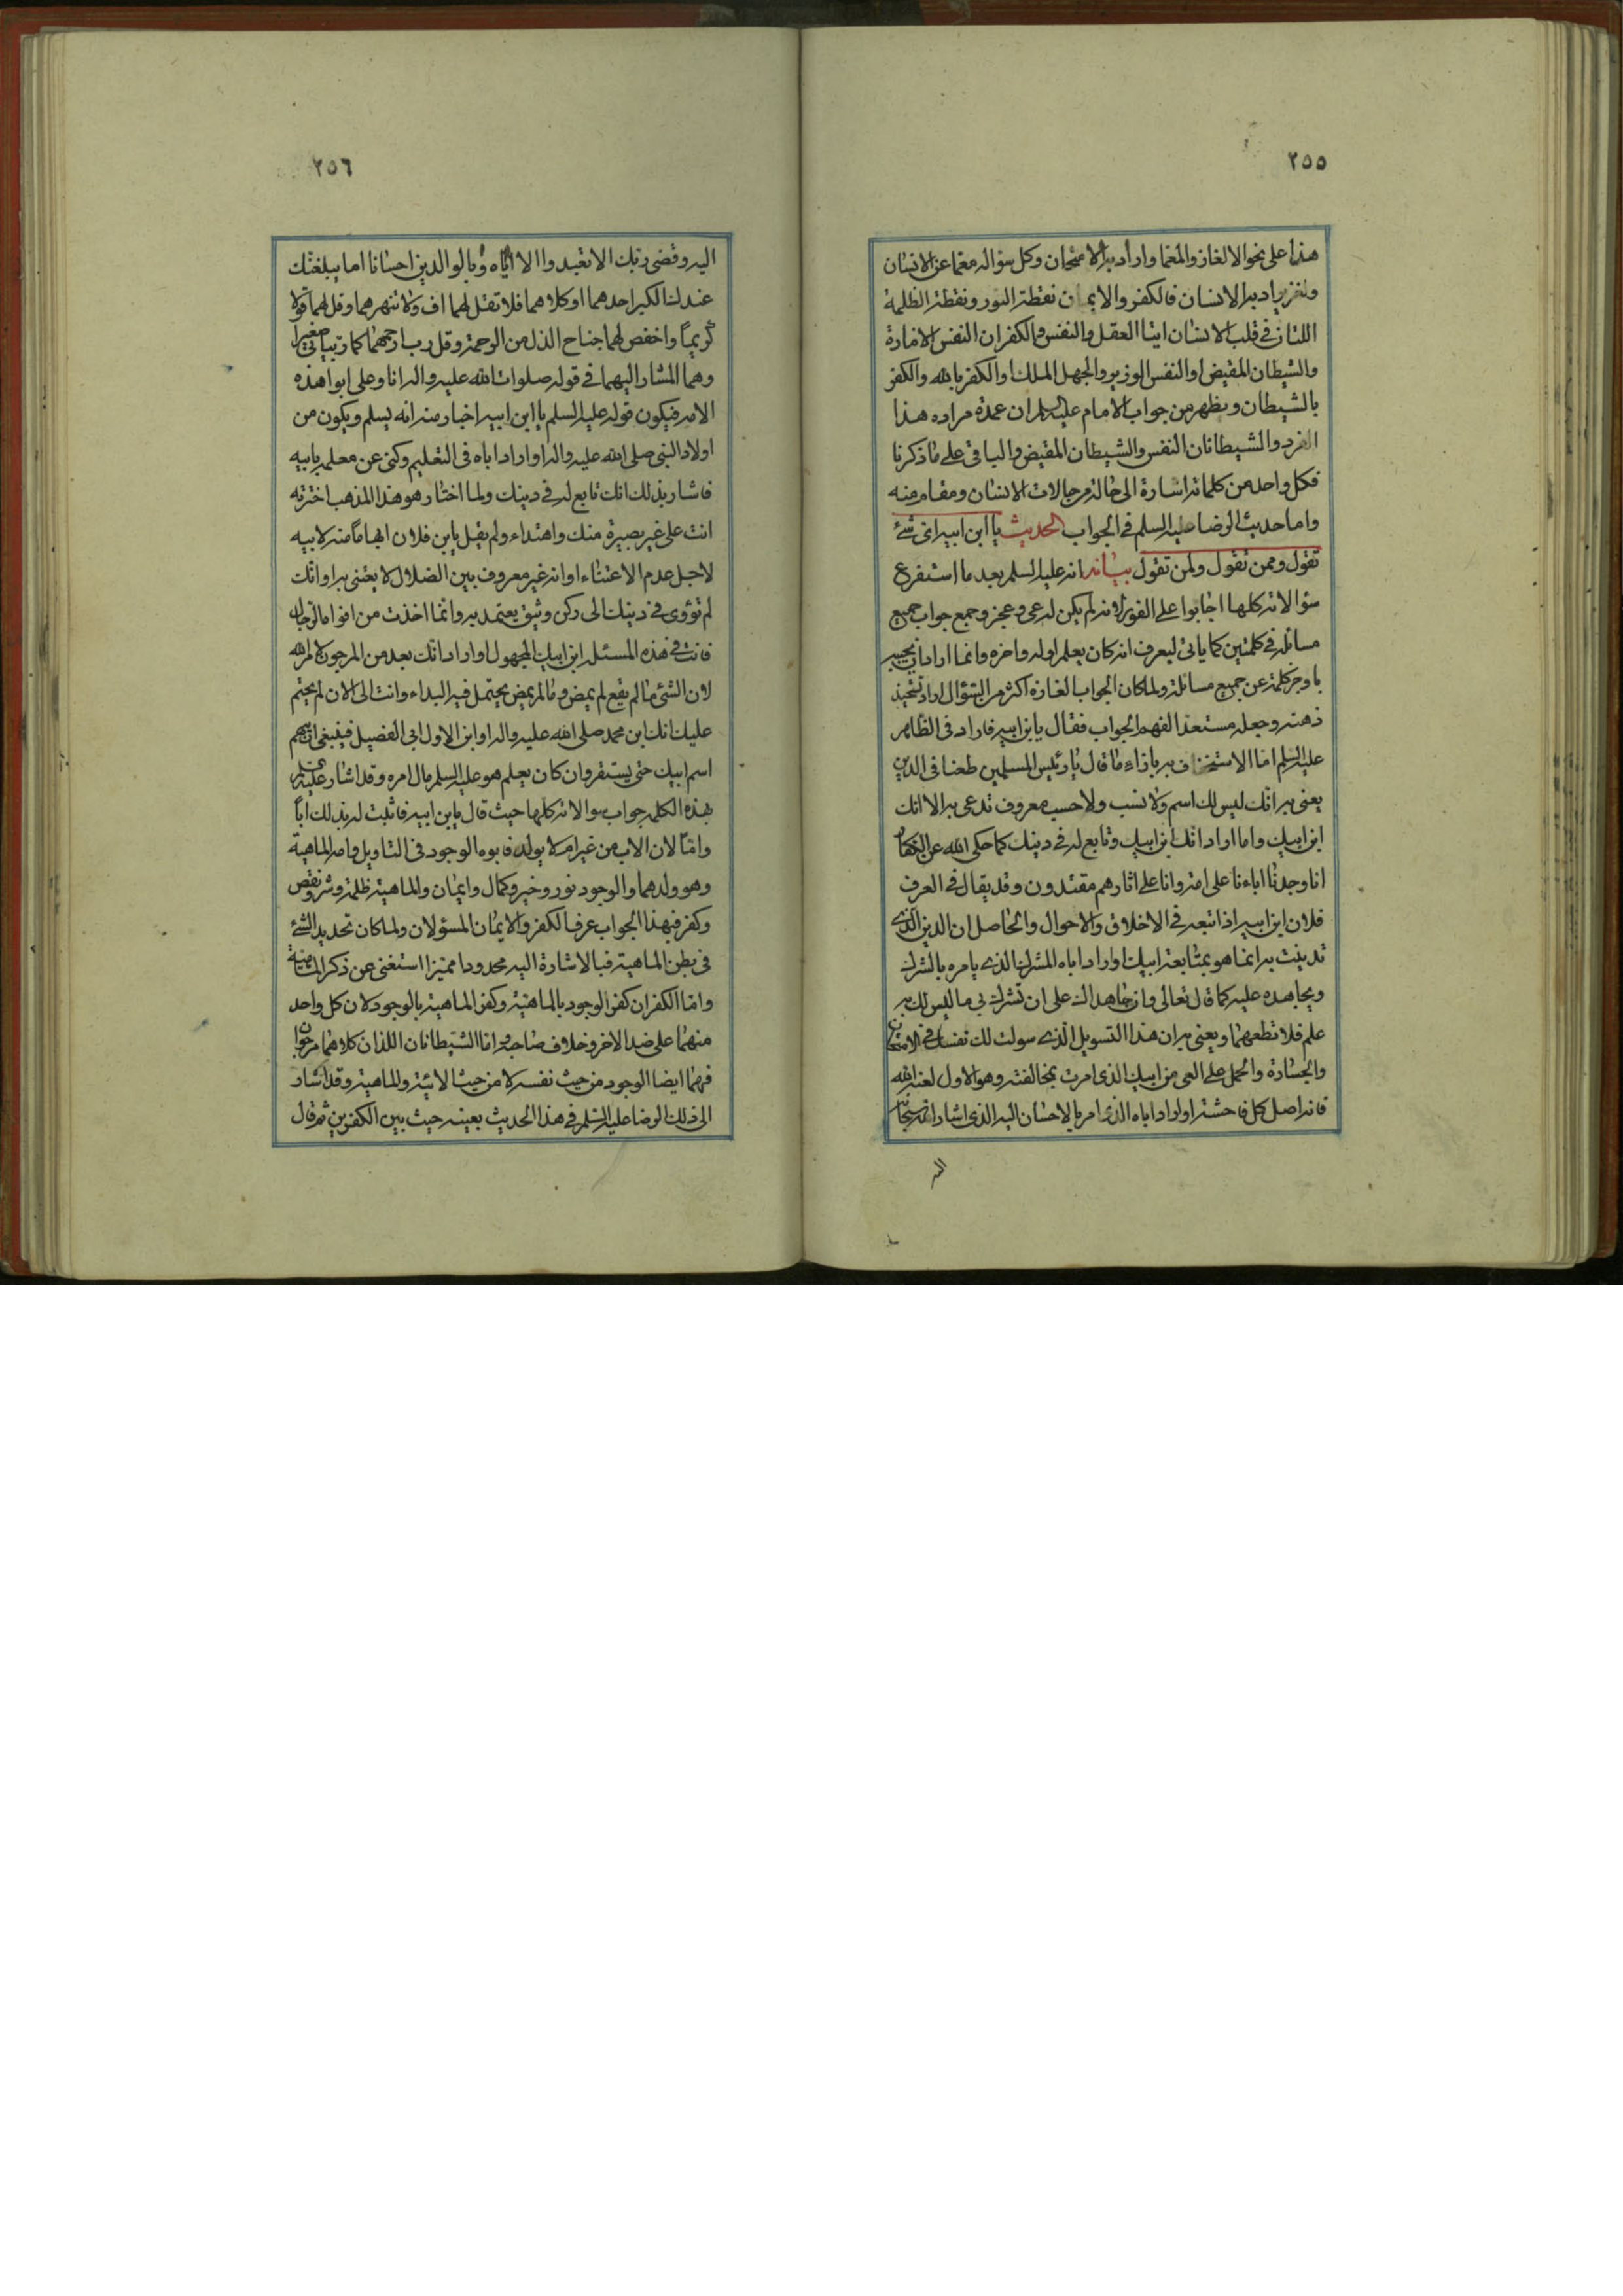 ٢٥٥
هذا على نحو الالغاز والمعما واراد به الامتحان وكل سؤاله معما عن الانسان
ولغز يراد به الانسان فالكفر والايمان نقطة النور ونقطة الظلمة
اللتان في قلب الانسان انيتا العقل والنفس والكفران النفس الامارة
والشيطان المقيض او النفس الوزير والجهل الملك او الكفر بالله والكفر
بالشيطان ويظهر من جواب الامام عليه السلم ان عمدة مراده هذا
الفرد والشيطانان النفس والشيطان المقيض والباقي على ما ذكرنا
فكل واحد من كلماته اشارة الى حالة من حالات الانسان ومقام منه
واما حديث الرضا عليه السلم في الجواب الحديث يا ابن ابيه اى شئ
تقول وممن تقول ولمن تقول بيانه انه عليه السلم بعد ما استفرغ
سؤالاته كلها اجابوا على الفور لانه لم يكن له عى وعجز وجمع جواب جميع
مسائله في كلمتين كما ياتى ليعرف انه كان يعلم اوله واخره وانما اراد ان يجيبه
باوجز كلمة عن جميع مسائله ولما كان الجواب الغازه اكثر من السؤال اراد تشحيذ
ذهنه وجعله مستعدا لفهم الجواب فقال يابن ابيه فاراد في الظاهر
عليه السلم اما الاستخفاف به بازاء ما قال يا رئيس المسلمين طعنا في الدين
يعنى به انك ليس لك اسم ولا نسب ولا حسب معروف تدعى به الا انك
ابن ابيك واما اراد انك ابن ابيك وتابع له في دينك كما حكى الله عن الكفار
انا وجدنا اباءنا على امة وانا على اثارهم مقتدون وقد يقال في العرف
فلان ابن ابيه اذا تبعه في الاخلاق والاحوال والحاصل ان الدين الذى
تدينت به انما هو بمتابعة ابيك او اراد اباه المشرك الذى يامره بالشرك
ويجاهده عليه كما قال تعالى وان جاهداك على ان تشرك بى ما ليس لك به
علم فلا تطعهما ويعنى به ان هذا التسويل الذى سولت لك نفسك في الامتحان
والجسارة والحمل على العى من ابيك الذى امرت بمخالفته وهو الاول لعنه الله
فانه اصل كل فاحشة او اراد اباه الذى امر بالاحسان اليه الذى اشار الله سبحانه
اليه
٢٥٦
اليه وقضى ربك الا تعبدوا الا اياه وبالوالدين احسانا اما يبلغنك
عندك الكبر احدهما او كلاهما فلا تقل لهما اف ولا تنهرهما وقل لهما قولا
كريما واخفض لهما جناح الذل من الرحمة وقل رب ارحمهما كما ربيانى صغيرا
وهما المشار اليهما في قوله صلوات الله عليه واله انا وعلى ابوا هذه
الامة فيكون قوله عليه السلم يا ابن ابيه اخبار منه انه يسلم ويكون من
اولاد النبى صلى الله عليه واله او اراد اباه في التعليم وكنى عن معلمه بابيه
فاشار بذلك انك تابع له في دينك ولما اختار هو هذا المذهب اخترته
انت على غير بصيرة منك واهتداء ولم يقل يابن فلان ابهاما منه لابيه
لاجل عدم الاعتناء او انه غير معروف بين الضلال لا يعتنى به او انك
لم تؤوى في دينك الى ركن وثيق يعتمد به وانما اخذت من افواه الرجال
فانت في هذه المسئلة ابن ابيك المجهول او اراد انك بعد من المرجون لامر الله
لان الشئ ما لم يقع لم يمض وما لم يمض يحتمل فيه البداء وانت الى الان لم يحتم
عليك انك ابن محمد صلى الله عليه واله او ابن الاول ابى الفصيل فينبغى ان يبهم
اسم ابيك حتى يستقر وان كان يعلم هو عليه السلم مال امره وقد اشار عليه السلم
بهذه الكلمة جواب سوالاته كلها حيث قال يابن ابيه فاثبت له بذلك ابا
واما لان الاب من غير ام لا يولد فابوه الوجود في التاويل وامه الماهية
وهو ولدهما والوجود نور وخير وكمال وايمان والماهية ظلمة وشر ونقص
وكفر فبهذا الجواب عرف الكفر والايمان المسؤلان ولما كان تحديد الشئ
في بطن الماهية فبالاشارة اليه محدودا مميزا استغنى عن ذكر الماهية
واما الكفران كفر الوجود بالماهية وكفر الماهية بالوجود لان كل واحد
منهما على ضد الاخر وخلاف صاحبه واما الشيطانان اللذان كلاهما مرجوان
فهما ايضا الوجود من حيث نفسه لا من حيث الانية والماهية وقد اشار
الى ذلك الرضا عليه السلم في هذا الحديث بعينه حيث بين الكفرين ثم قال